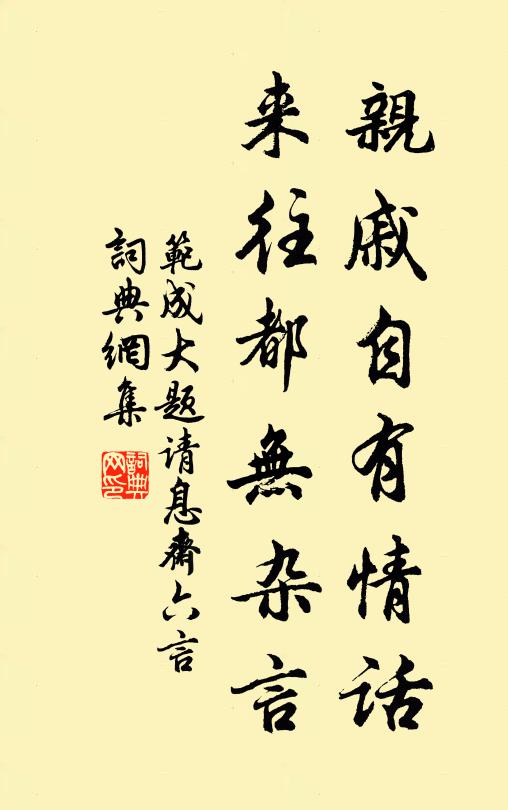 親戚自有情話
来往都無杂言
範成大题请息齋六言
詞典網集
詞典网印